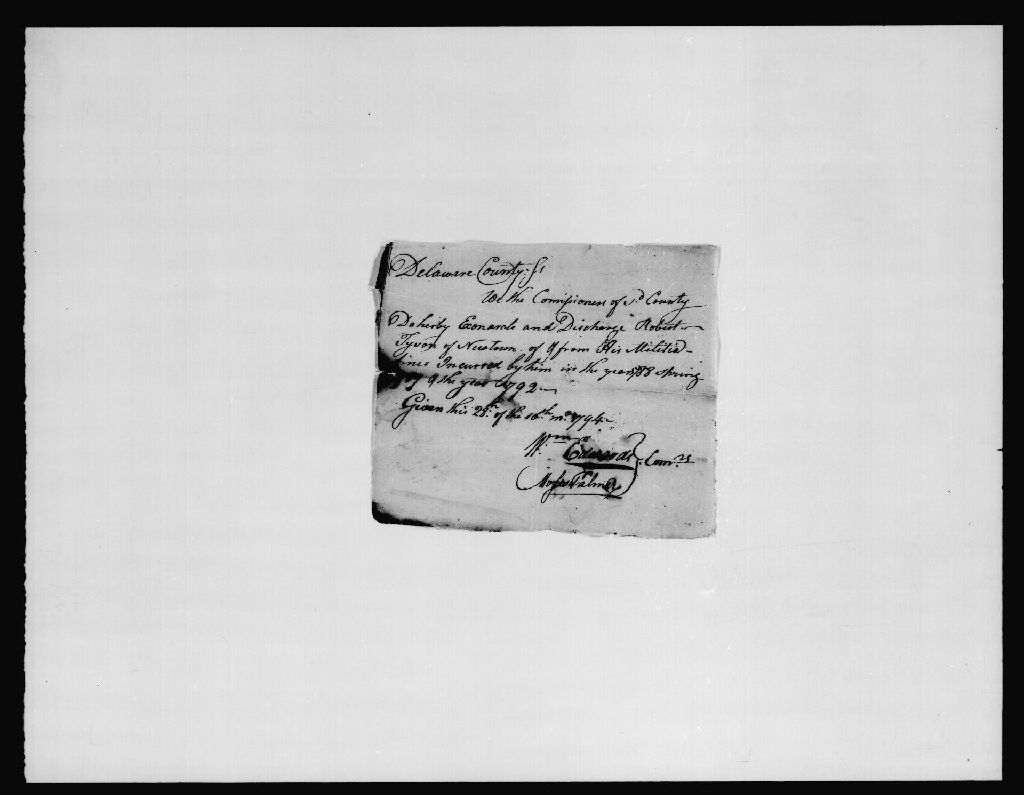 Delaware County Ss
We the Comissioners of sd. County
Do herby Exonarate and Discharge Robert
Tyson of Newtown of & from His Militia
fines Incurred by him in the year 1788 spring
of the year 1792
Given this 28th. of the 10th mo. 1794
Wm
Edwards Comrs
Moses Palmer